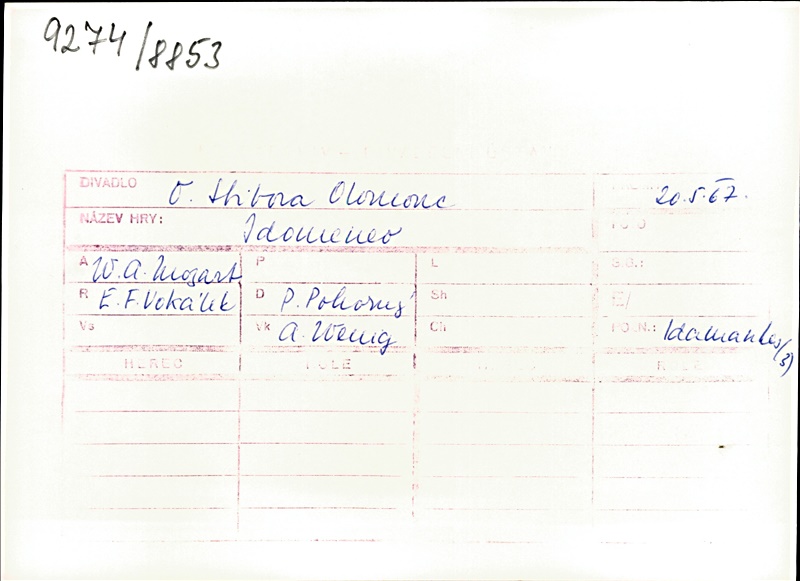 9274/8853
DIVADLO O. Stibora Olomouc 20.5.67.
NÁZEV HRY: Idomeneo FOTO
A W.A. Mozart P L S.G.:
R E.F. Vokálek D P. Pokorný Sh E/
Vs Vk A. Wenig Ch POZN.: Idamantes (3)
HEREC ROLE ROLE